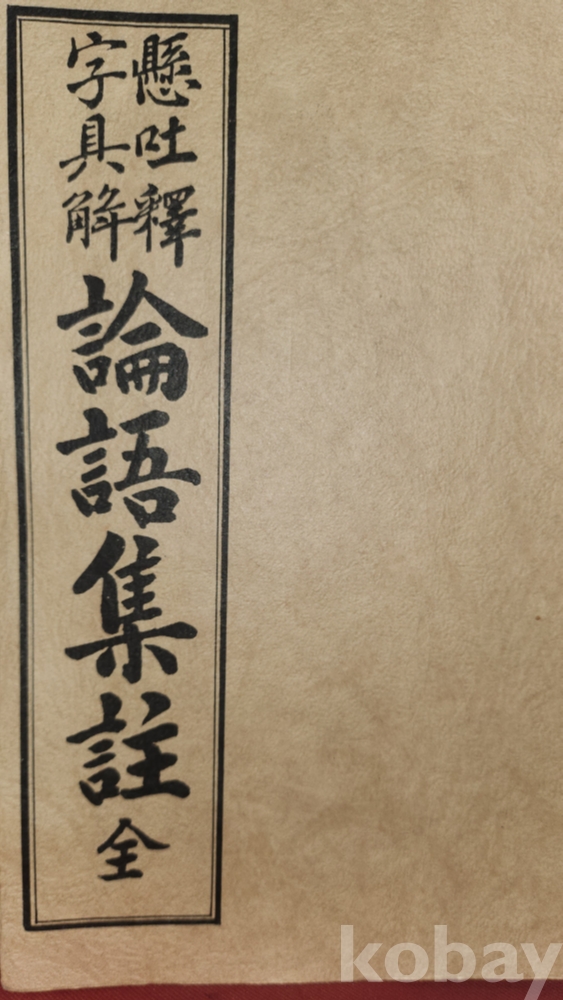 懸吐釋
字具解
論語集註 全
kobay